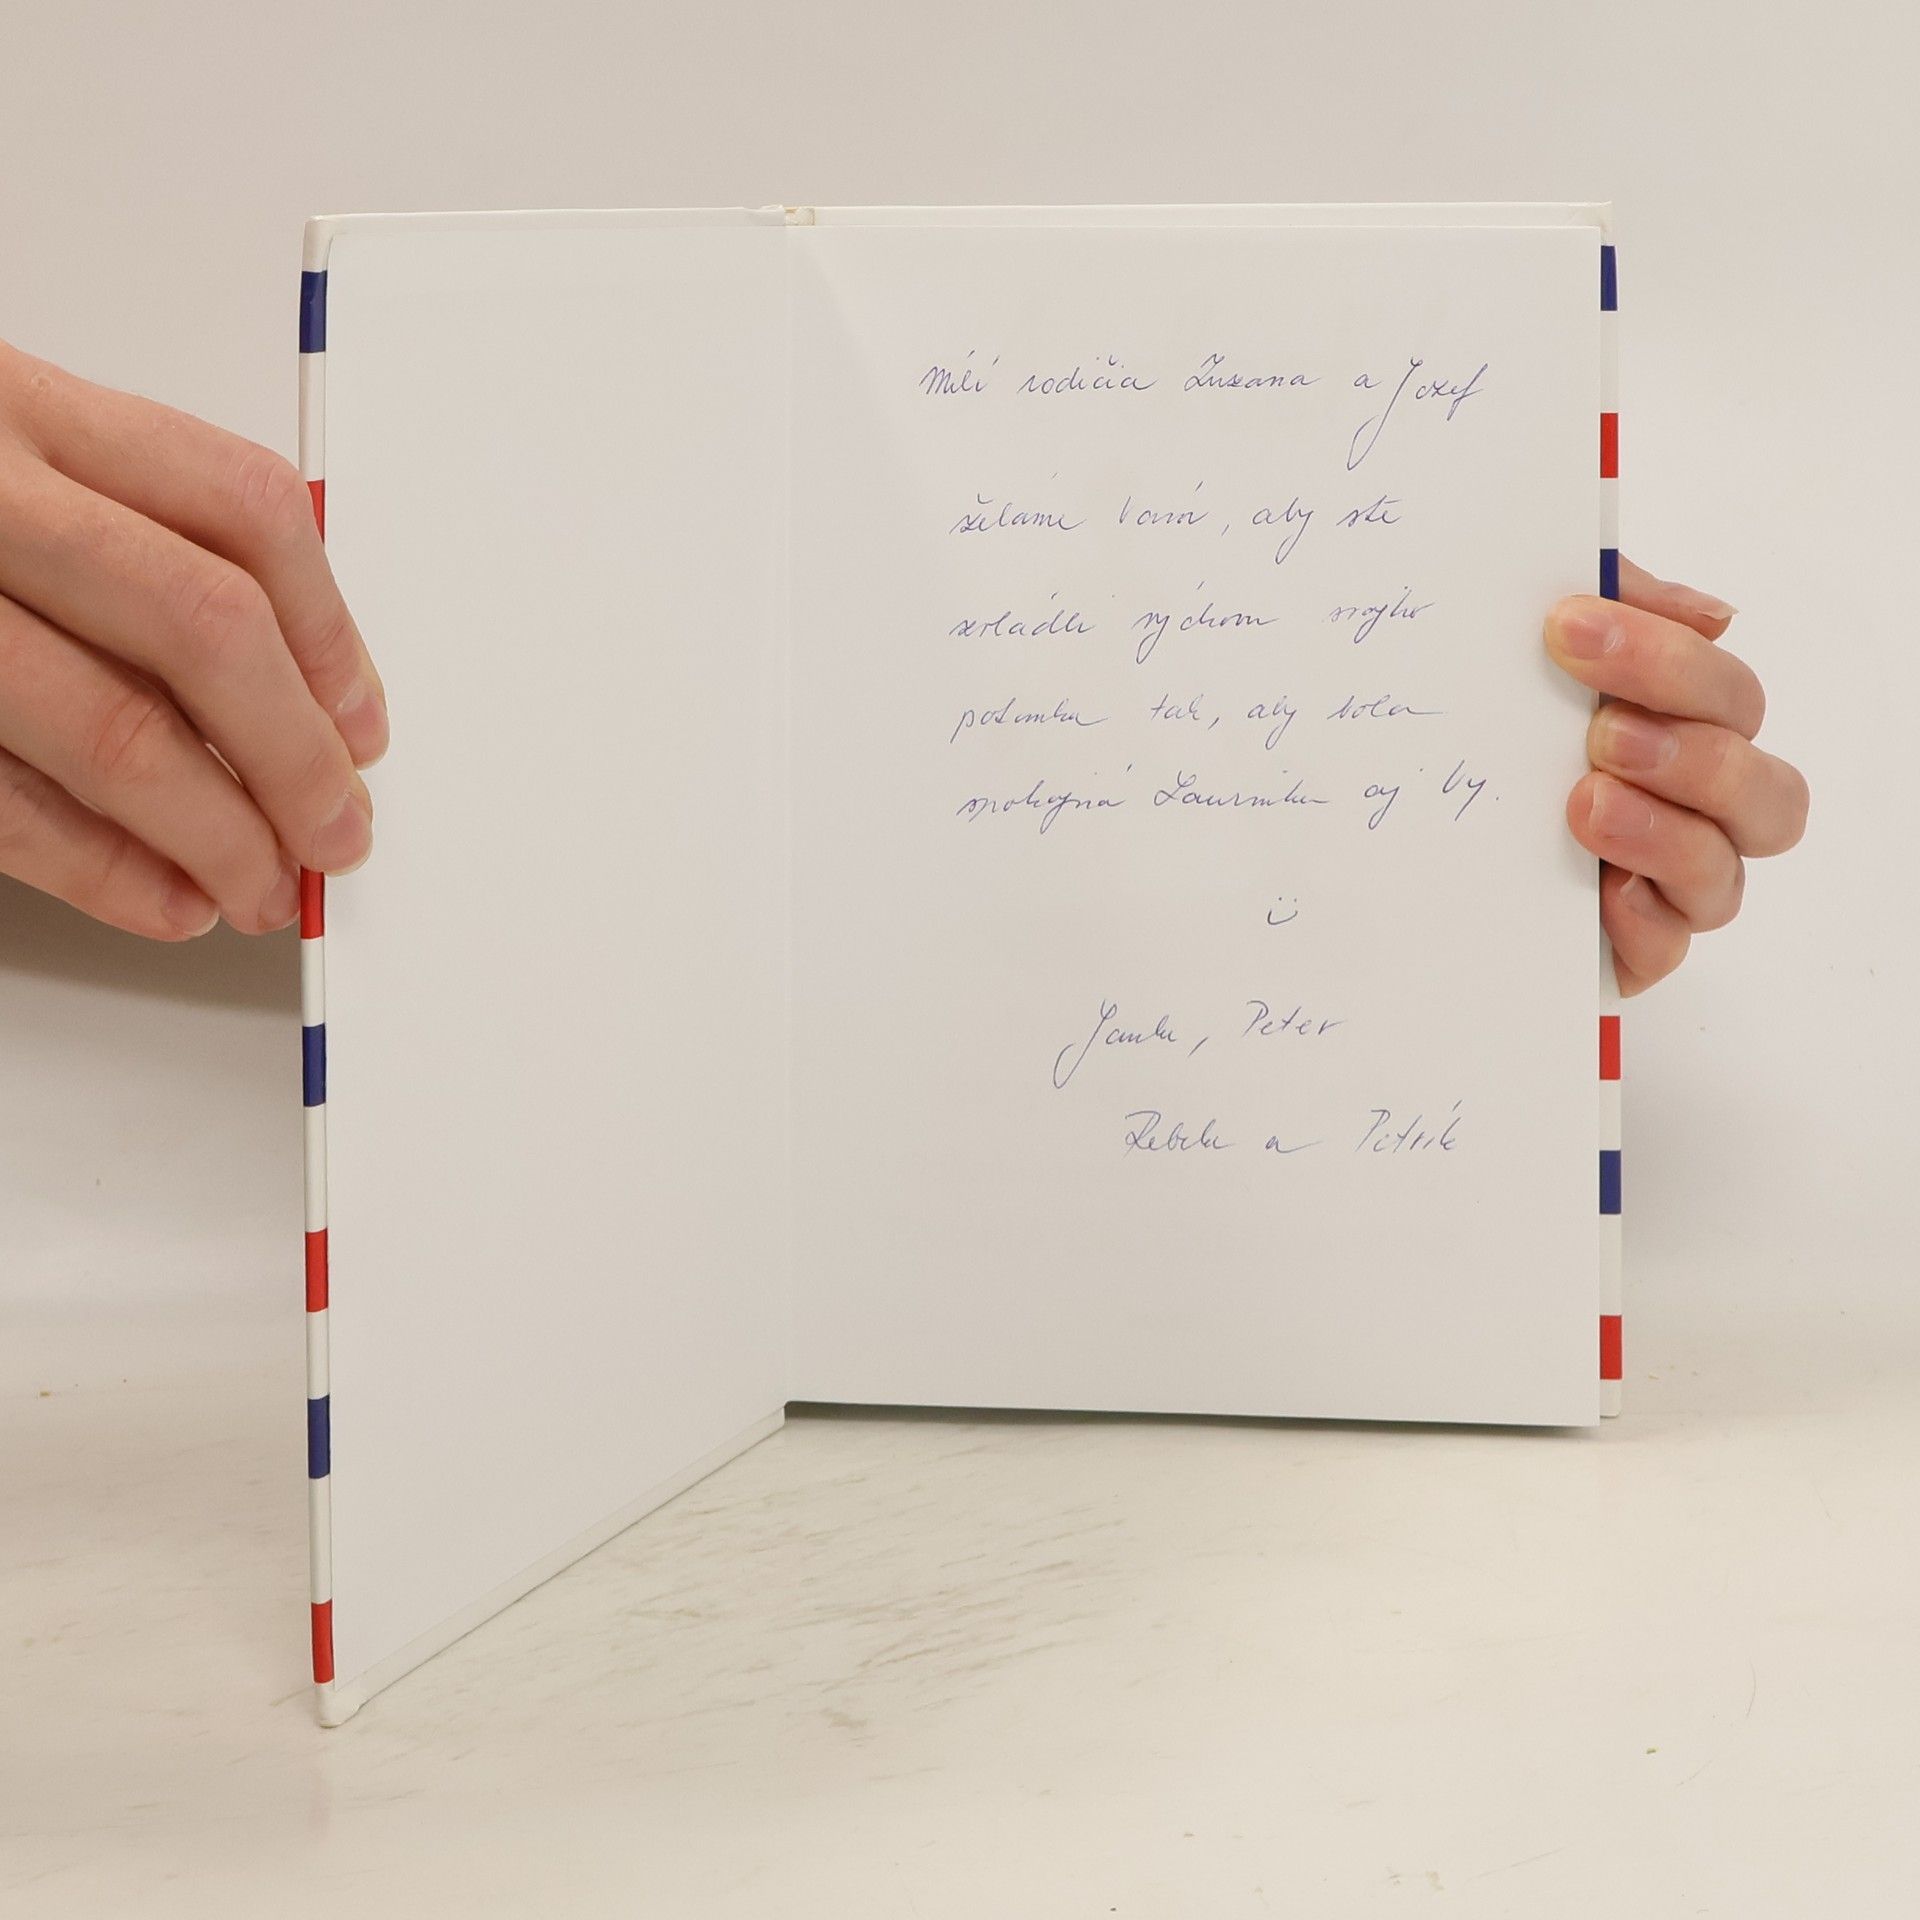 Milí rodičia Zuzana a Jozef
želáme Vám, aby ste
zvládli výchovu svojho
potomka tak, aby bola
spokojná Laurinka aj Vy.
Janka, Peter
Rebeka a Petrík